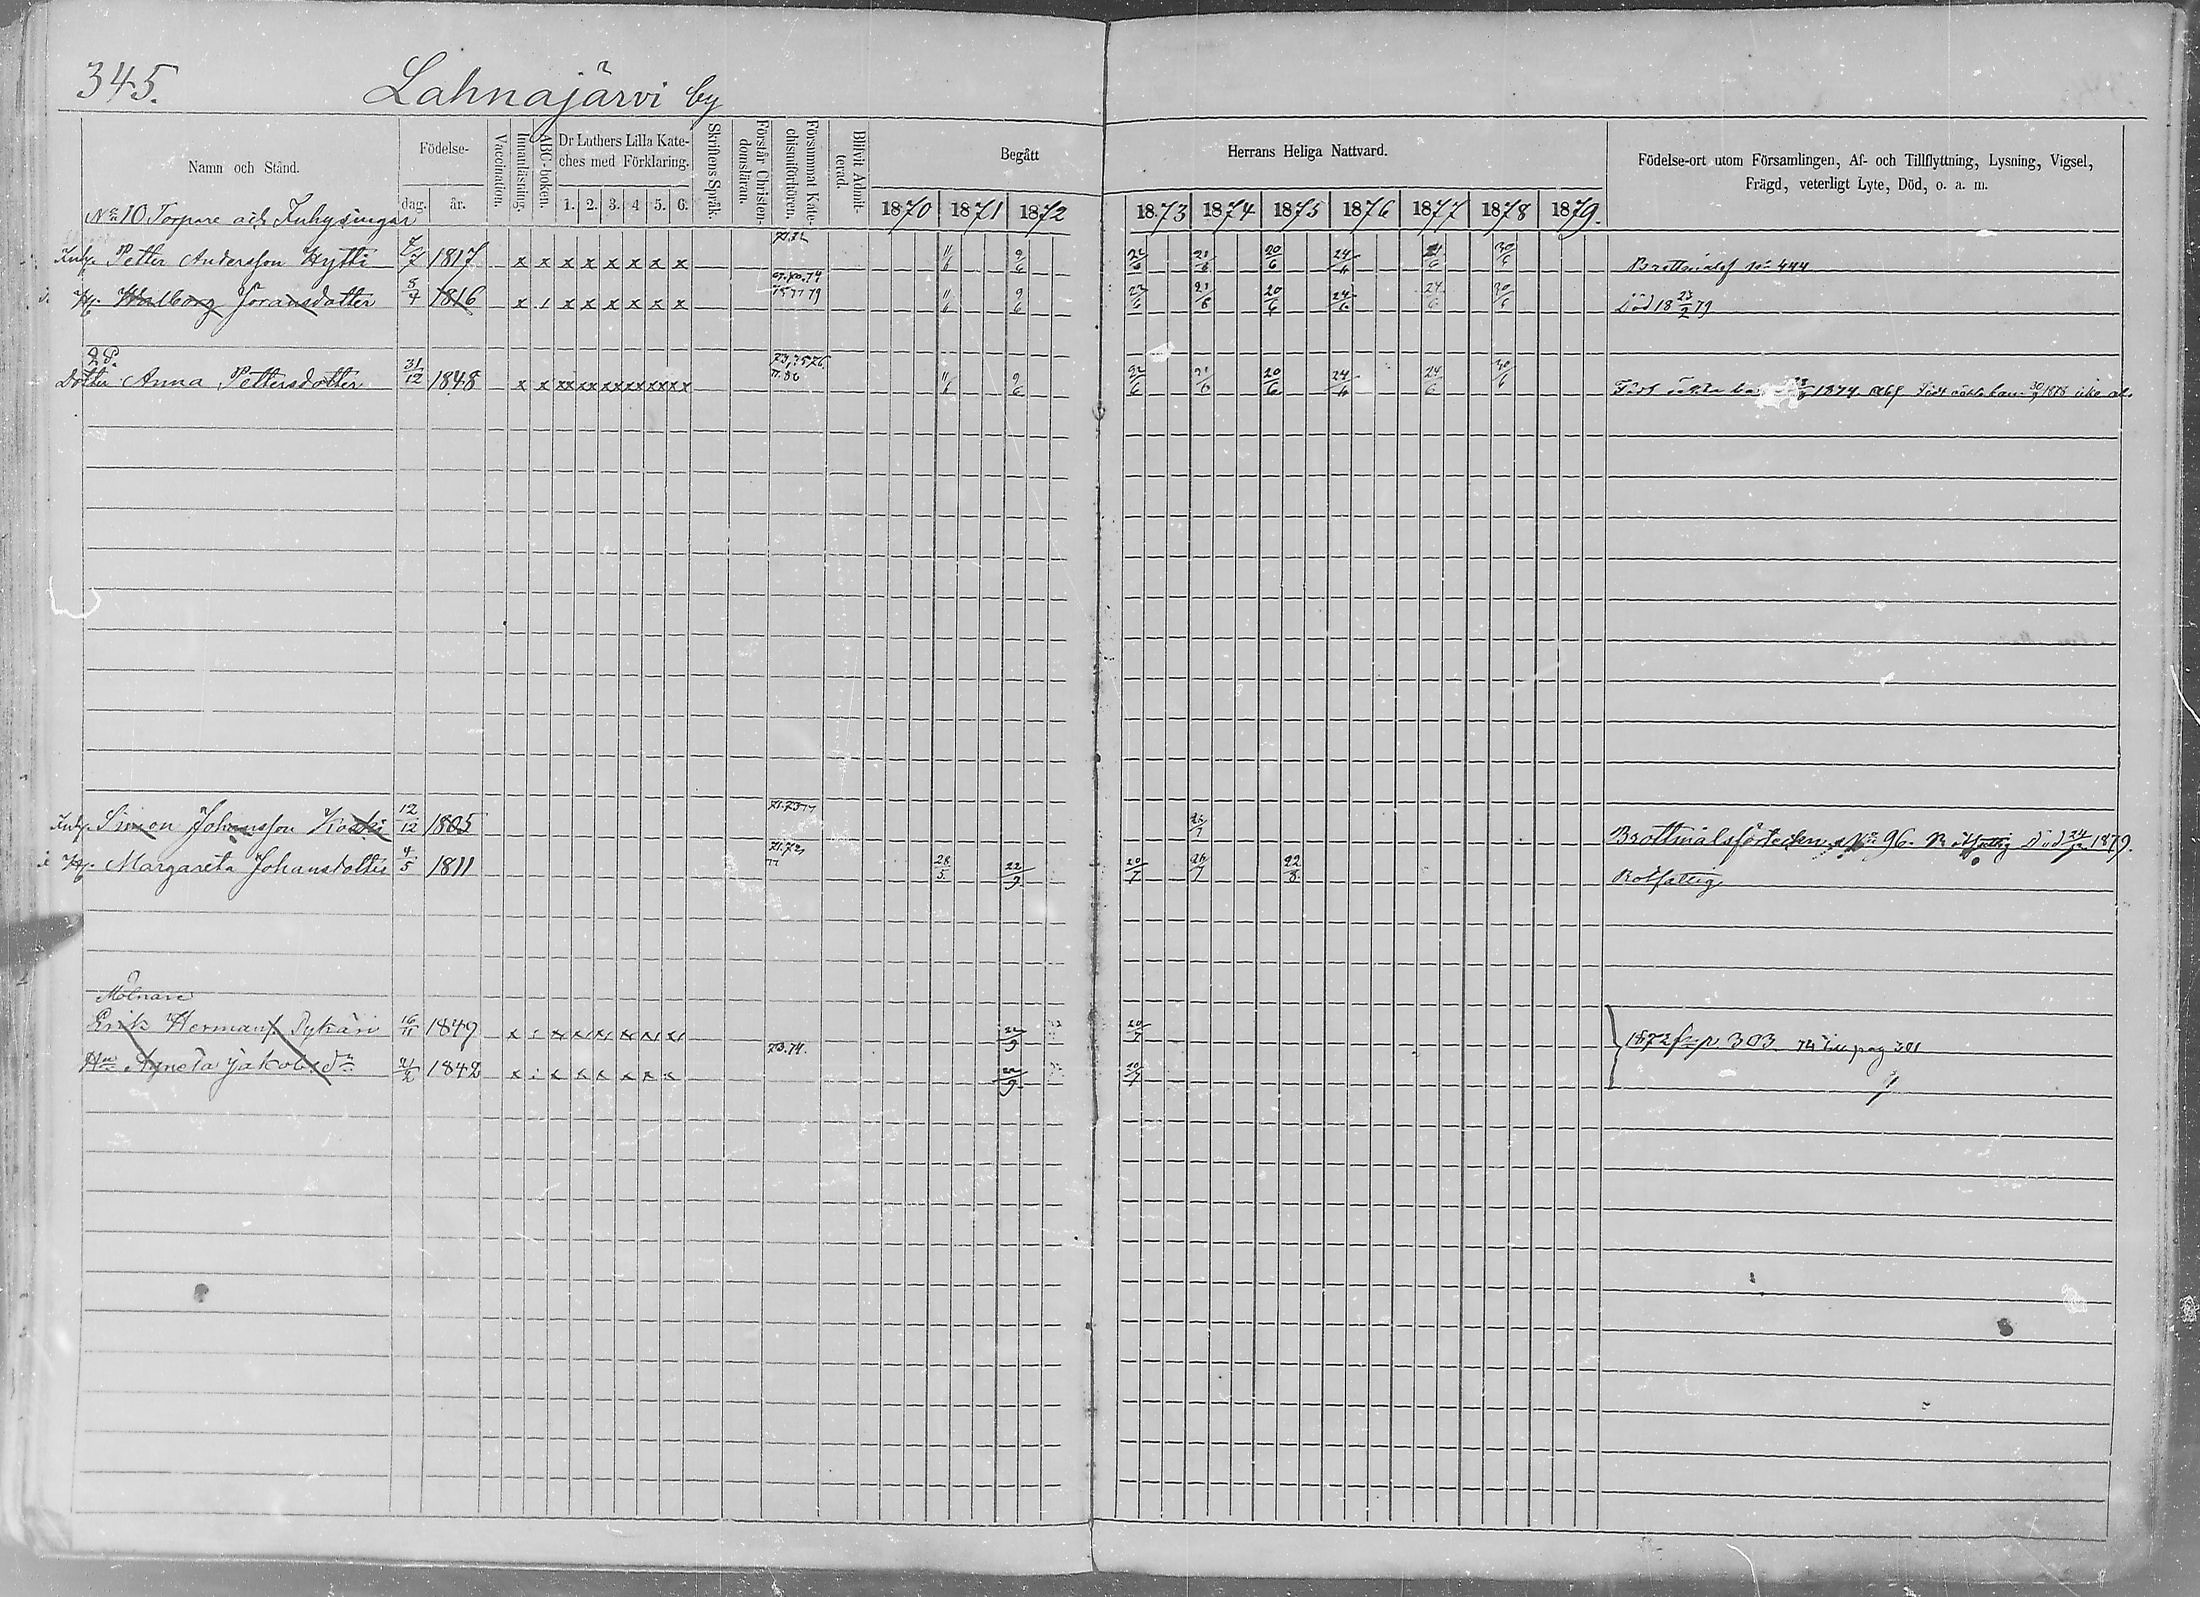 345.
Lahnajärvi by
Namn och Stånd.
Födelse-
dag. år.
Vaccination.
Innanläsning.
ABC-boken.
Dr Luthers Lilla Kate-
ches med Förklaring.
1. 2. 3. 4 5. 6.
Skriftens Språk.
Förstår Christen-
domsläran.
Försummat Kate-
chismiförhören.
Blifvit Admit-
terad.
Begått
Herrans Heliga Nattvard.
1870 1871 1872 1873 1874 1875 1876 1877 1878 1879.
Födelse-ort utom Församlingen, Af- och Tillflyttning, Lysning, Vigsel,
Frägd, veterligt Lyte, Död, o. a. m.
No 10 Torpare och Inhysingar
Inhy. Petter Andersson Hytti 7/7 1817 x x x x x x x x 11/6 9/6 22/6 21/6 20/6 24/6 30/6 No 444
Hu Walborg Joransdotter 5/4 1816 x x x x x x x 75 77 79 11/6 9/6 21/6 20/6 24/6 24/6 30/6 Död 18 23/2 79
Dotter Anna Pettersdotter 31/12 1848 x x xx xx xx xx xx xx 11/6 9/6 22/6 21/6 20/6 24/6 24/6 30/6 1874 1878
Inhy. Simon Johansson Koski 12/12 1805 71.73 77 26/7 Brottmålsförteckn. No 96. Rotfattig Död 1879.
Hu Margareta Johansdotter 4/5 1811 71.72 77 28/5 22/9 20/7 26/7 22/8 Rotfattig
Mölnare
Erik Hermans. Pykäri 16/11 1849 22/9 20/7 1872 fr. p. 303 74 till pag 301
Hu Agneta Jakobsdr 21/2 1842 73.74. 22/9 20/7